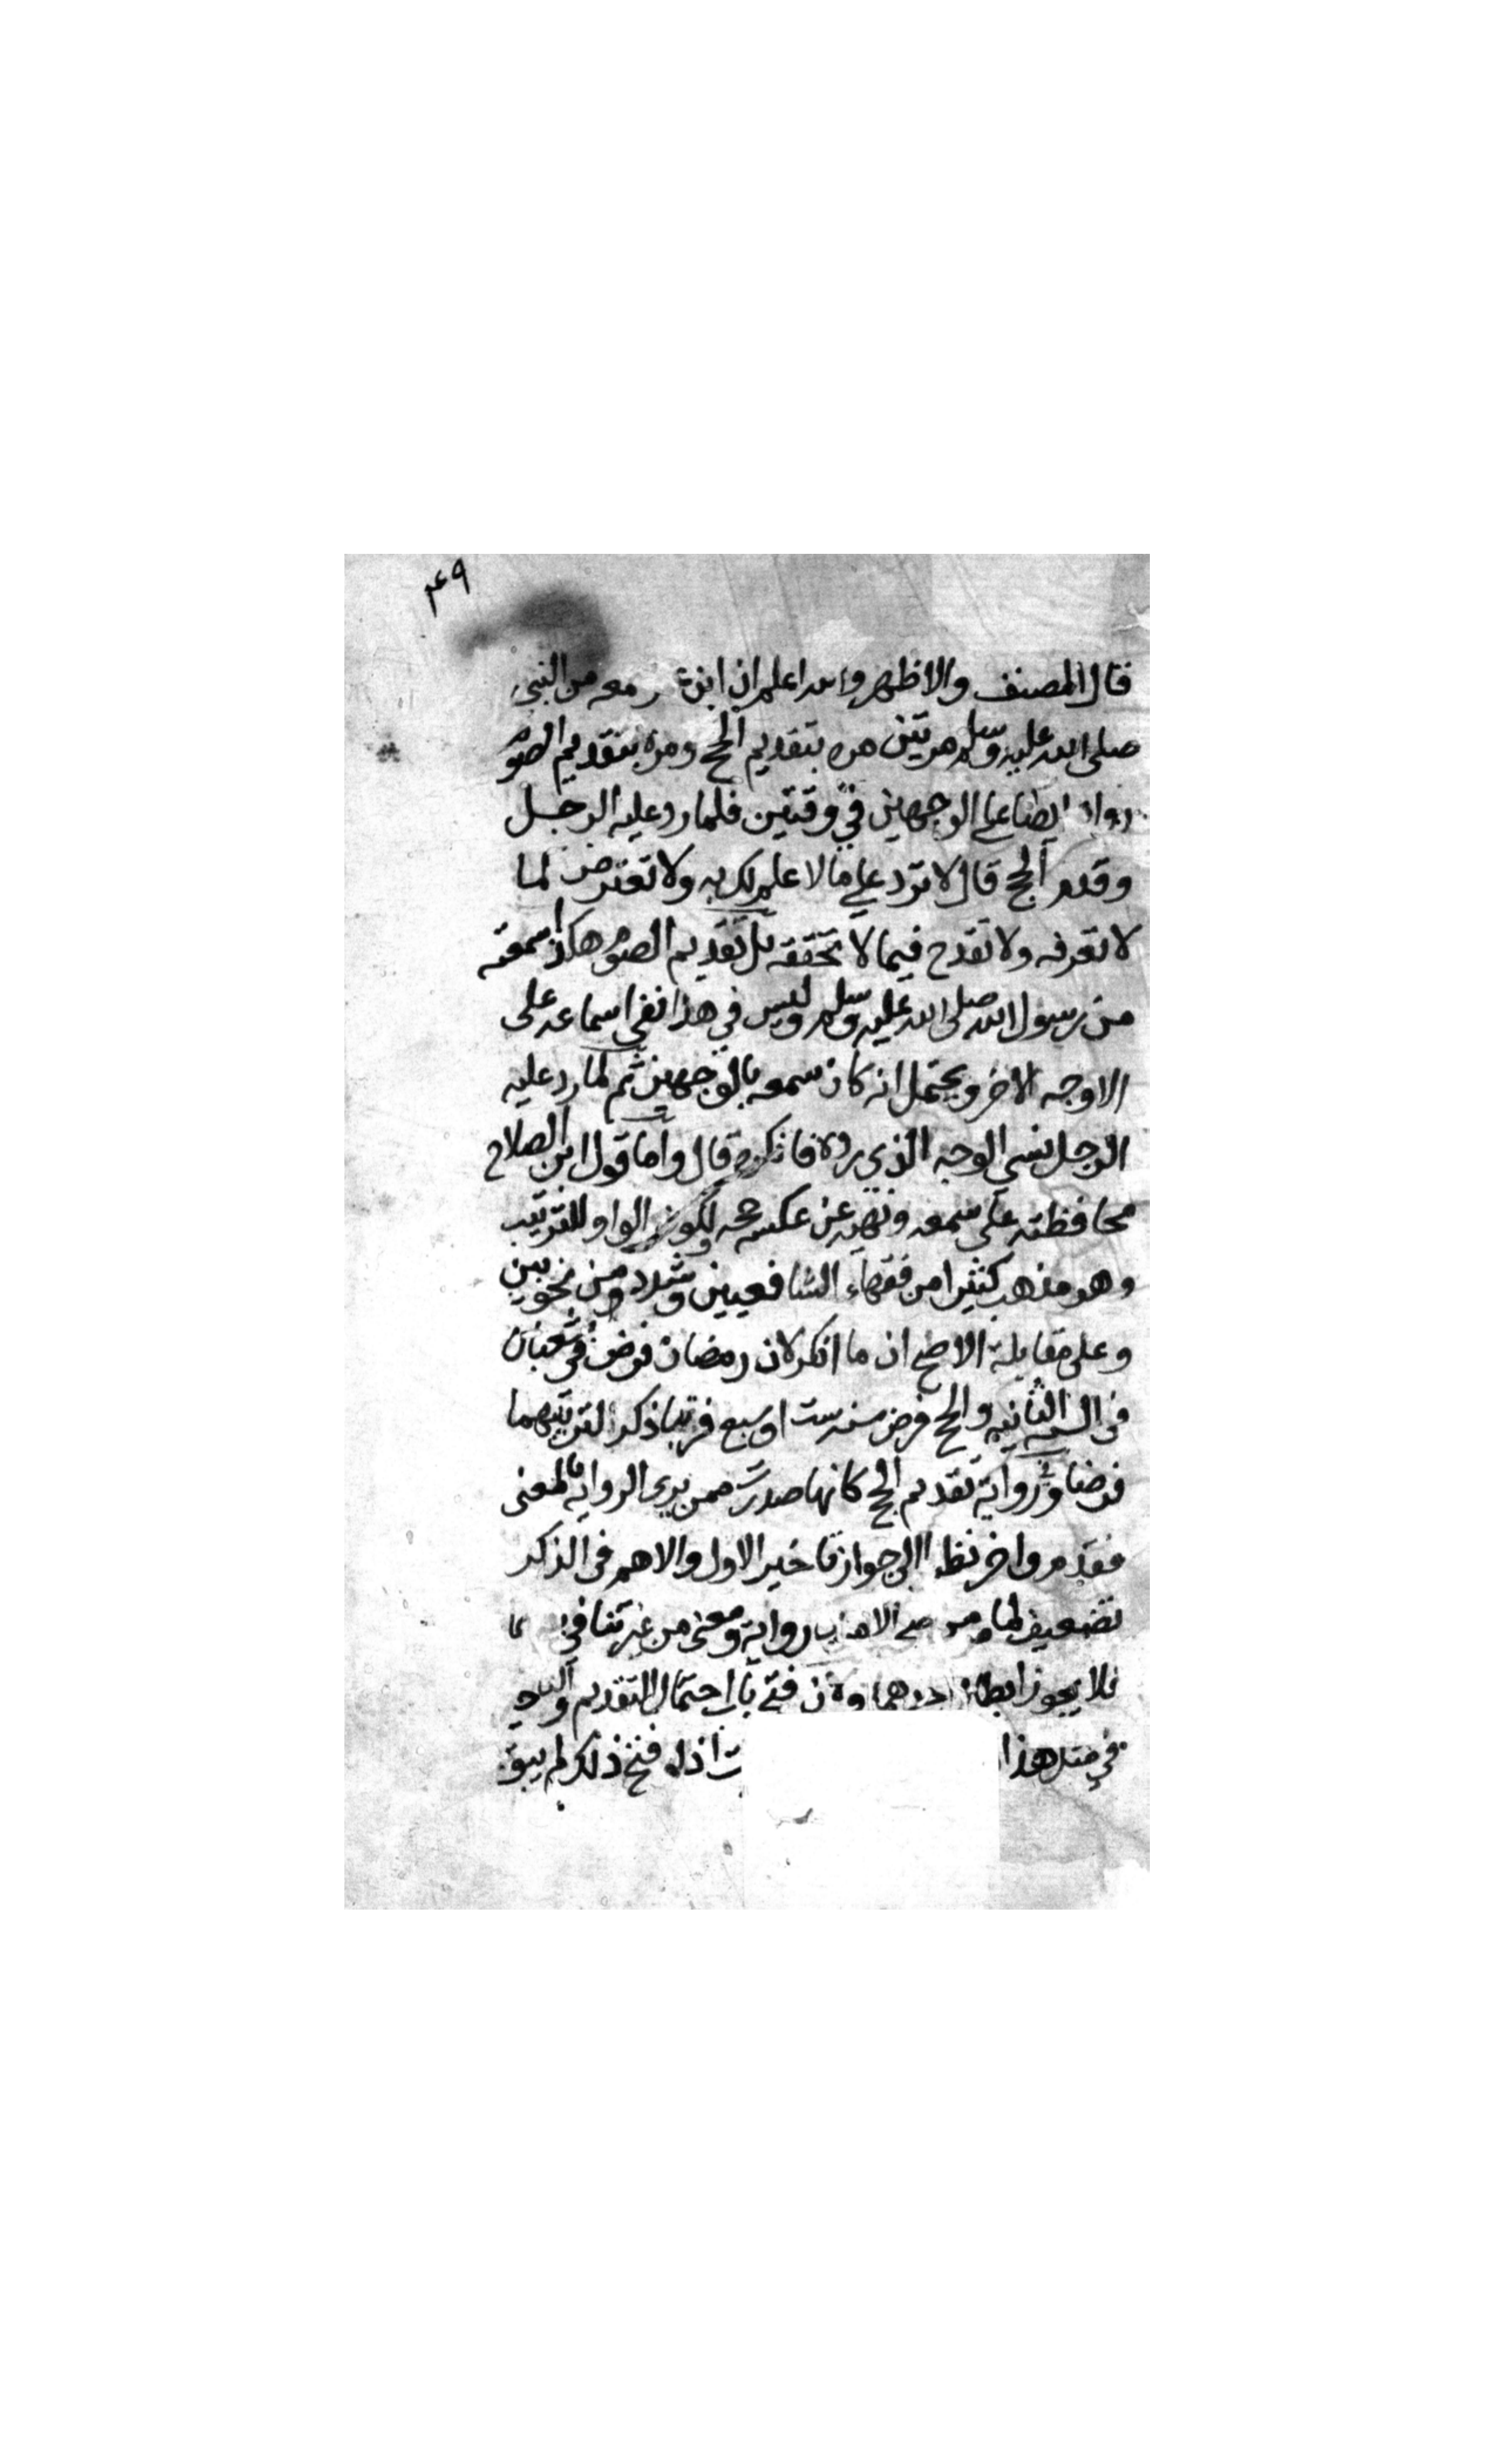 ٤٩
قال المصنف والاظهر والله اعلم ان ابن سمعه من النبي
صلى الله عليه وسلم مرتين مره بتقديم الحج ومره بتقديم الصوم
رواه ايضا على الوجهين في وقتين فلما رد عليه الرجل
وقدم الحج قال لا ترد علي ما لا علم لك به ولا تعترض لما
لا تعرفه ولا تقدح فيما لا تحققه بل تقديم الصوم هكذا سمعته
من رسول الله صلى الله عليه وسلم وليس في هذا نفي اسماعه على
الاوجه الاخر ويحتمل انه كان سمعه بالوجهين ثم لما رد عليه
الرجل نسي الوجه الذي رده فانكره قال واما قول ابن الصلاح
محافظته على سمعه ونهيه عن عكسه حجه لكون الواو للترتيب
وهو مذهب كثيرا من فقهاء الشافعيين وشذ ومن نحويين
وعلى مقابلة الاصح ان ما انكر لان رمضان فرض في شعبان
في السنه الثانيه والحج فرض سنه ست او سبع فرتبا ذكرا لترتيبهما
فرضا ورواية تقديم الحج كانها صدرت ممن يرى الرواية بالمعنى
فقدم واخر نظرا الى جواز تاخير الاول والاهم في الذكر
تضعيف لما صح الامران رواية ومعنى من غير تنافي
فلا يجوز ابطال احدهما ولان فتح باب احتمال التقديم والتاخير
في مثل هذا اذ لو فتح ذلك لم يبق